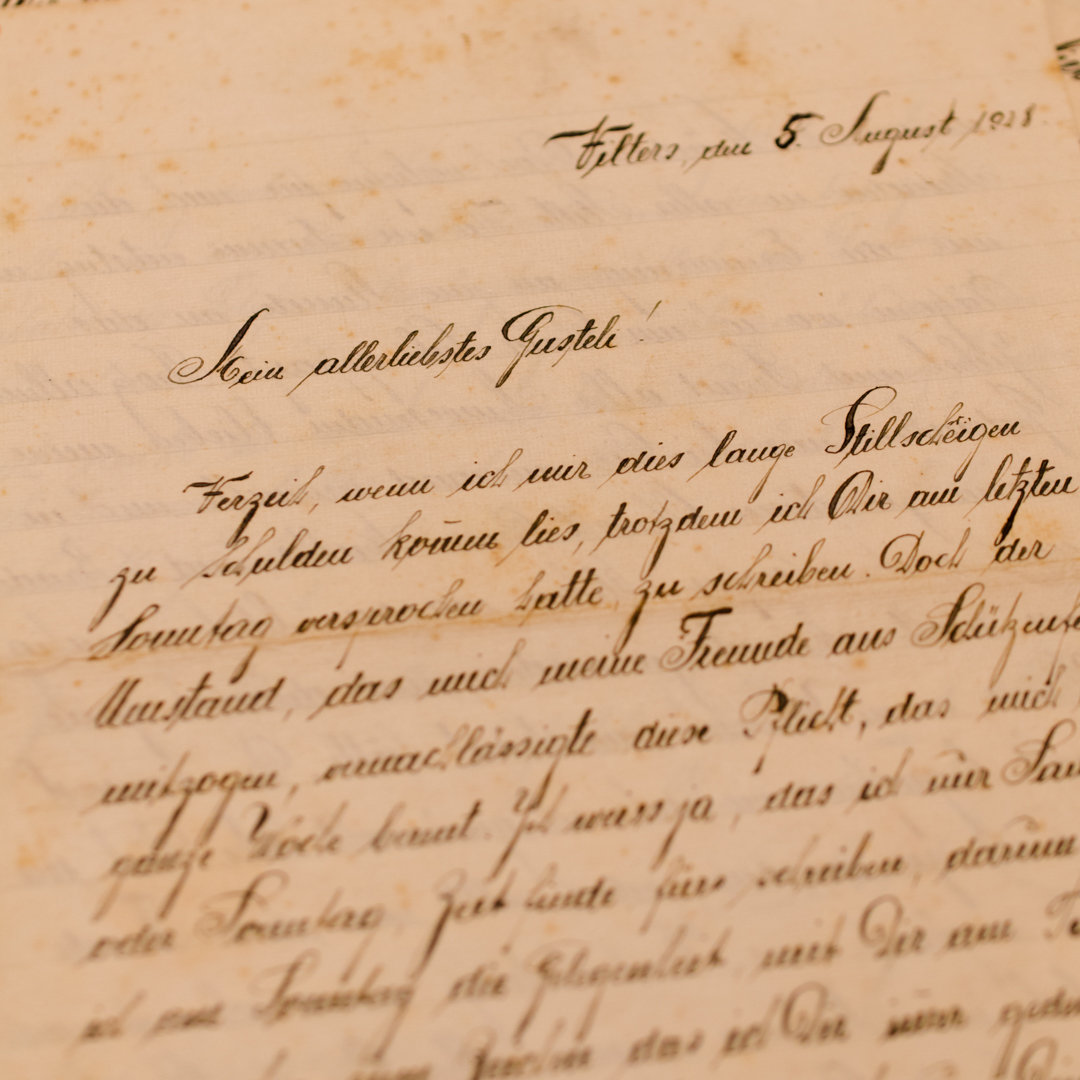 Vilters, den 5. August 1928.
Mein allerliebstes Gusteli!
Verzeih, wenn ich mir dies lange Stillscheigen
zu Schulden kom̄en lies, trotzdem ich Dir am letzten
Sonntag versprochen hatte, zu schreiben. Doch der
Umstand, das mich meine Freunde aus
mitzogen, vernachlässigte diese Pflicht, das mich
ganze Woche Ich weiss ja, das ich nur
oder Sonntag Zeit finde fürs schreiben, darum
ich am Sonntag die Gelegenheit mit Dir am
das ich Dir